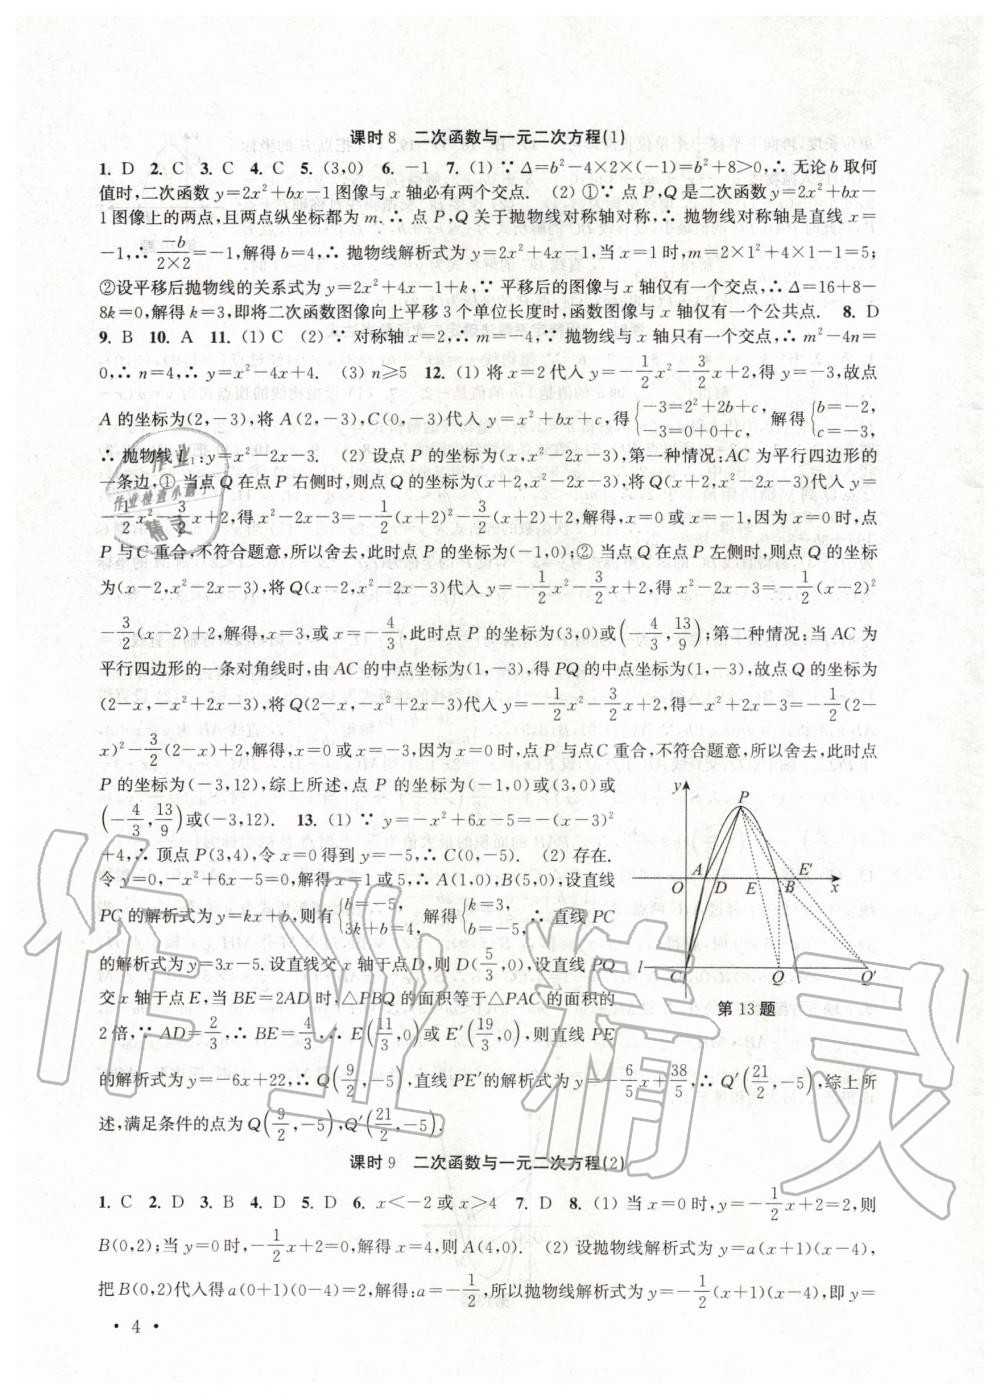 课时 8　二次函数与一元二次方程(1)
1. D 2. C 3. C 4. C 5. (3,0) 6. －1 7. (1) ∵ Δ=b²－4×2×(－1)=b²+8>0,∴ 无论 b 取何
值时,二次函数 y=2x²+bx－1 图像与 x 轴必有两个交点. (2) ①∵ 点 P,Q 是二次函数 y=2x²+bx－
1 图像上的两点,且两点纵坐标都为 m.∴ 点 P,Q 关于抛物线对称轴对称,∴ 抛物线对称轴是直线 x=
－1,∴ －b/(2×2)=－1,解得 b=4,∴ 抛物线解析式为 y=2x²+4x－1,当 x=1 时,m=2×1²+4×1－1=5;
②设平移后抛物线的关系式为 y=2x²+4x－1+k,∵ 平移后的图像与 x 轴仅有一个交点,∴ Δ=16+8－
8k=0,解得 k=3,即将二次函数图像向上平移 3 个单位长度时,函数图像与 x 轴仅有一个公共点. 8. D
9. B 10. A 11. (1) C (2) ∵ 对称轴 x=2,∴ m=－4,∵ 抛物线与 x 轴只有一个交点,∴ m²－4n=
0,∴ n=4,∴ y=x²－4x+4. (3) n≥5 12. (1) 将 x=2 代入 y=－1/2x²－3/2x+2,得 y=－3,故点
A 的坐标为(2,－3),将 A(2,－3),C(0,－3)代入 y=x²+bx+c,得{－3=2²+2b+c, －3=0+0+c, 解得{b=－2, c=－3,
∴ 抛物线 L₁:y=x²－2x－3. (2) 设点 P 的坐标为(x,x²－2x－3),第一种情况:AC 为平行四边形的
一条边,① 当点 Q 在点 P 右侧时,则点 Q 的坐标为(x+2,x²－2x－3),将 Q(x+2,x²－2x－3)代入 y=
－1/2x²－3/2x+2,得 x²－2x－3=－1/2(x+2)²－3/2(x+2)+2,解得,x=0 或 x=－1,因为 x=0 时,点
P 与 C 重合,不符合题意,所以舍去,此时点 P 的坐标为(－1,0);② 当点 Q 在点 P 左侧时,则点 Q 的坐标
为(x－2,x²－2x－3),将 Q(x－2,x²－2x－3)代入 y=－1/2x²－3/2x+2,得 x²－2x－3=－1/2(x－2)²
－3/2(x－2)+2,解得,x=3,或 x=－4/3,此时点 P 的坐标为(3,0)或(－4/3,13/9);第二种情况:当 AC 为
平行四边形的一条对角线时,由 AC 的中点坐标为(1,－3),得 PQ 的中点坐标为(1,－3),故点 Q 的坐标为
(2－x,－x²+2x－3),将 Q(2－x,－x²+2x－3)代入 y=－1/2x²－3/2x+2,得－x²+2x－3=－1/2(2－
x)²－3/2(2－x)+2,解得,x=0 或 x=－3,因为 x=0 时,点 P 与点C 重合,不符合题意,所以舍去,此时点
P 的坐标为(－3,12),综上所述,点 P 的坐标为(－1,0)或(3,0)或
(－4/3,13/9)或(－3,12). 13. (1) ∵ y=－x²+6x－5=－(x－3)²
+4,∴ 顶点 P(3,4),令 x=0 得到 y=－5,∴ C(0,－5). (2) 存在.
令 y=0,－x²+6x－5=0,解得 x=1 或 5,∴ A(1,0),B(5,0),设直线
PC 的解析式为 y=kx+b,则有{b=－5, 3k+b=4, 解得{k=3, b=－5, ∴ 直线 PC
的解析式为 y=3x－5.设直线交 x 轴于点 D,则 D(5/3,0),设直线 PQ
交 x 轴于点 E,当 BE=2AD 时,△PBQ 的面积等于△PAC 的面积的
2 倍,∵ AD=2/3,∴ BE=4/3,∴ E(11/3,0)或 E′(19/3,0),则直线 PE
的解析式为 y=－6x+22,∴ Q(9/2,－5),直线 PE′的解析式为 y=－6/5x+38/5,∴ Q′(21/2,－5),综上所
述,满足条件的点为 Q(9/2,－5),Q′(21/2,－5).
y P A B E′ O D E x l C Q Q′
第 13 题
课时 9　二次函数与一元二次方程(2)
1. C 2. D 3. B 4. D 5. D 6. x<－2 或 x>4 7. D 8. (1) 当 x=0 时,y=－1/2x+2=2,则
B(0,2);当 y=0 时,－1/2x+2=0,解得 x=4,则 A(4,0). (2) 设抛物线解析式为 y=a(x+1)(x－4),
把 B(0,2)代入得 a(0+1)(0－4)=2,解得:a=－1/2,所以抛物线解析式为 y=－1/2(x+1)(x－4),即 y=
· 4 ·
作业
作业检查小助手
精灵
作业精灵